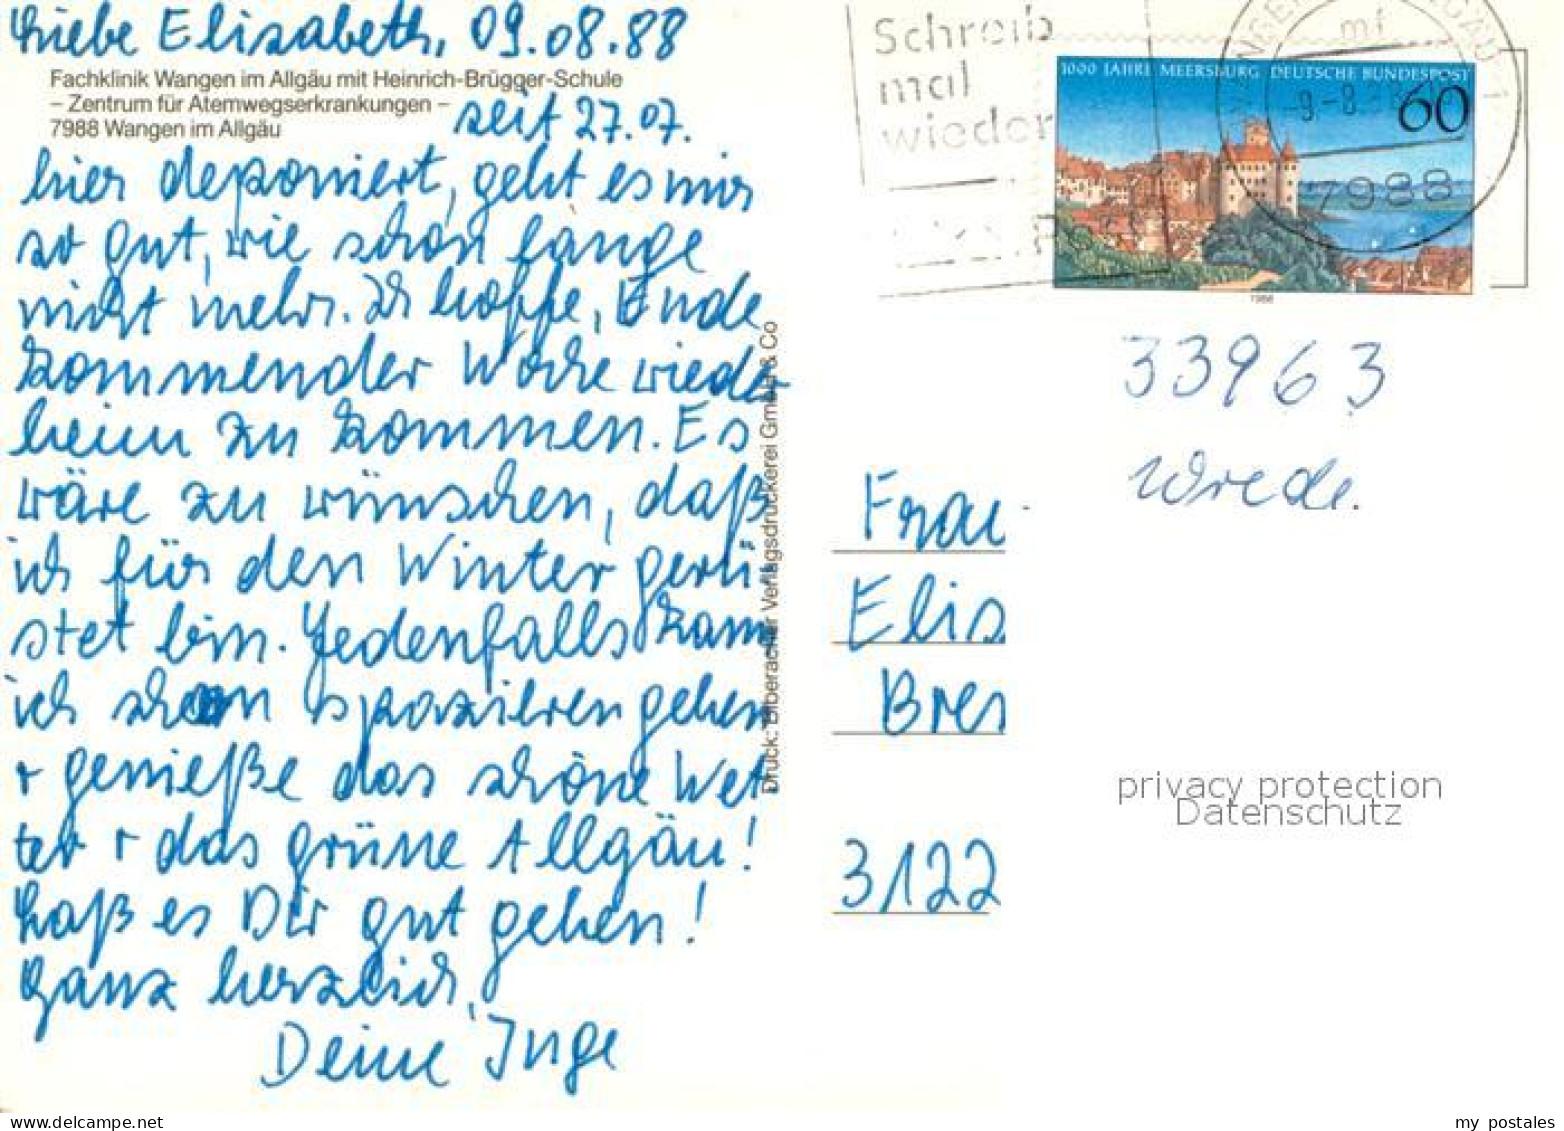 Liebe Elisabeth, 09.08.88
Fachklinik Wangen im Allgäu mit Heinrich-Brügger-Schule
– Zentrum für Atemwegserkrankungen –
7988 Wangen im Allgäu
seit 27.07.
hier deponiert, geht es mir
so gut, wie schon lange
nicht mehr. Ich hoffe, Ende
kommender Woche wieder
heim zu kommen. Es
wäre zu wünschen, daß
ich für den Winter gerü-
stet bin. Jedenfalls kann
ich schon spazieren gehen
+ genieße das schöne Wet
ter + das grüne Allgäu!
Laß es Dir gut gehen!
Ganz herzlich,
Deine Inge
Druck: Biberacher Verlagsdruckerei GmbH & Co
Schreib
mal
wieder
1000 JAHRE MEERSBURG DEUTSCHE BUNDESPOST
60
1988
mf
-9.-8.88
7988
33963
Wrede.
Frau
Elis
Bres
3122
privacy protection
Datenschutz
my postales